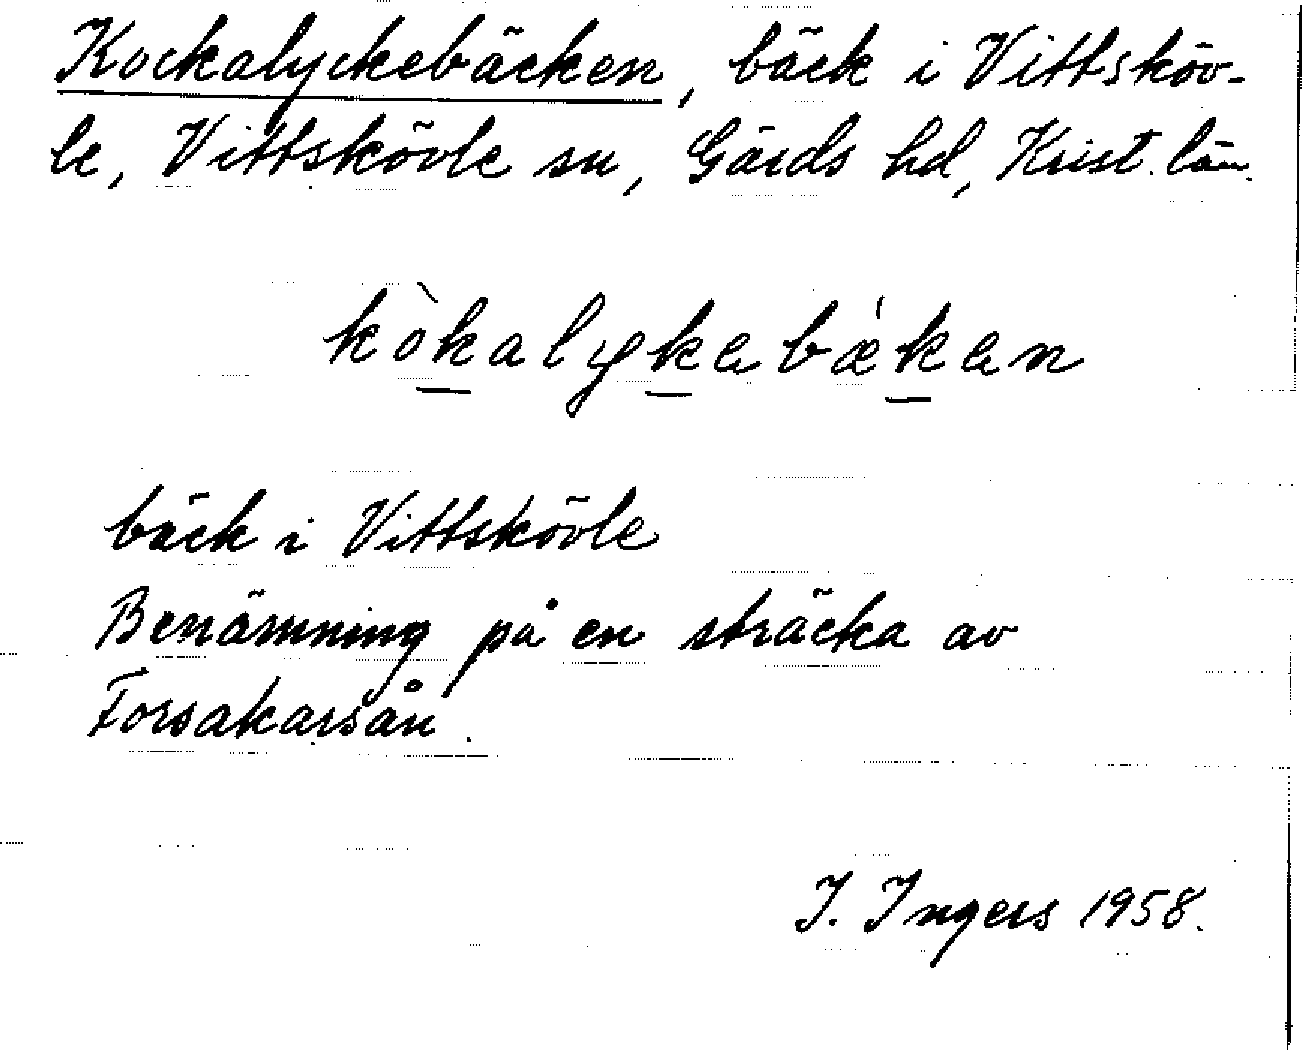 Kockalyckebäcken, bäck i Vittsköv-
le, Vittskövle sn, Gärds hd, Krist. län.
kòkalykəbǽkən
bäck i Vittskövle
Benämning på en sträcka av
Forsakarsån.
I. Ingers 1958.